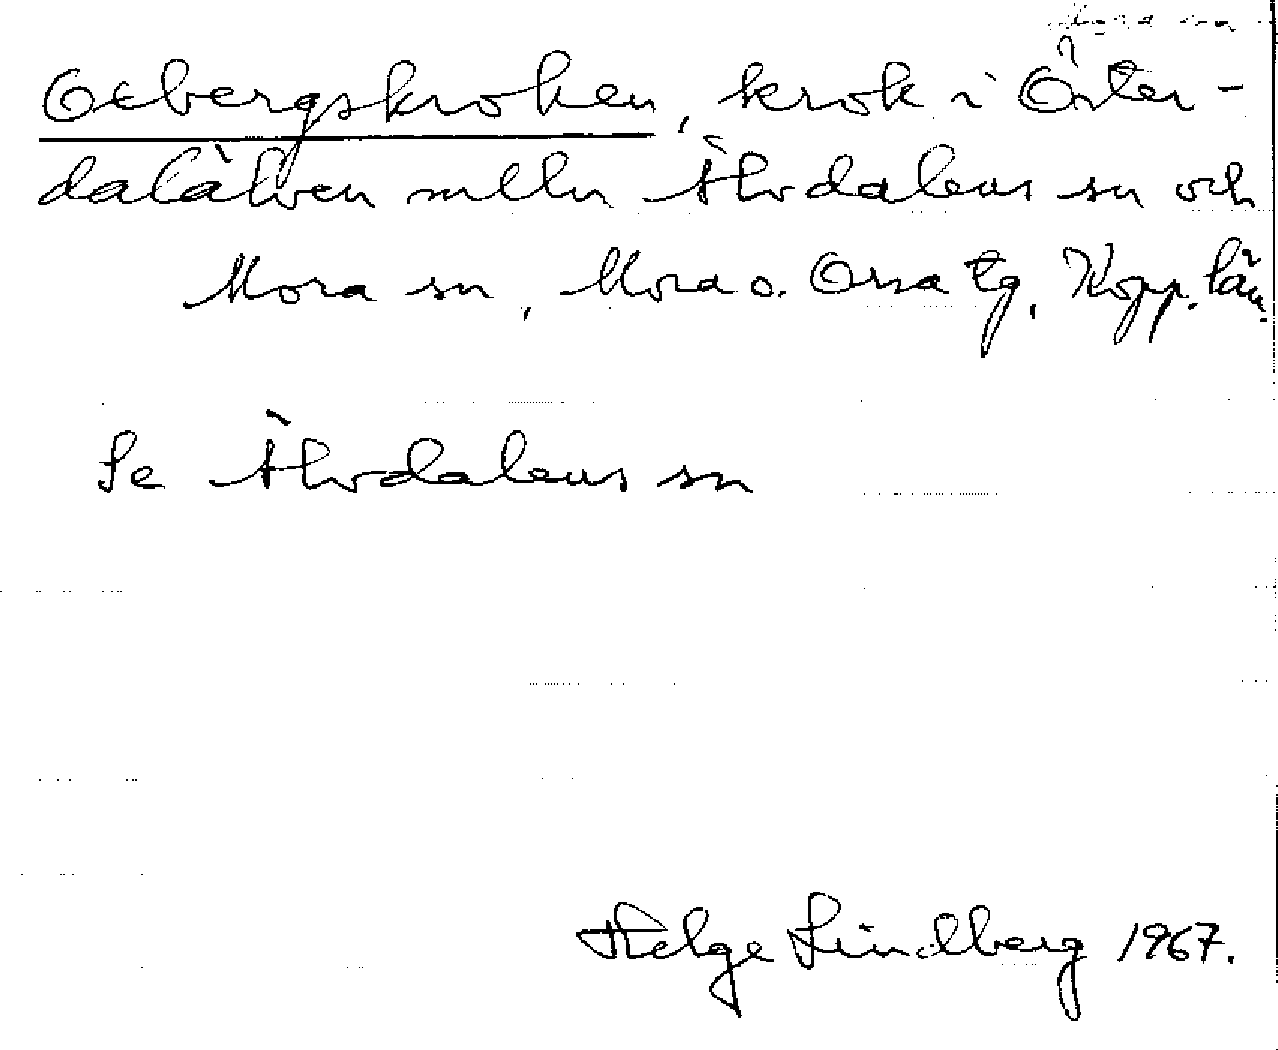 Oxbergskroken, krok i Öster-
dalälven mlln Älvdalens sn och
Mora sn, Mora o. Orsa tg, Kopp. län.
Se Älvdalens sn
Helge Lindberg 1967.